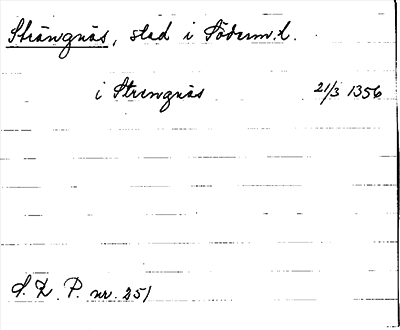 Strängnäs, stad i Söderm.l.
i Strengnäs 21/3 1356
S. D. P. nr. 251